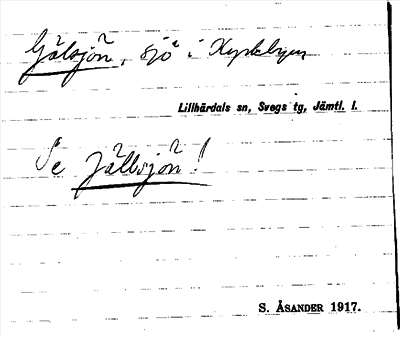 Gälsjön, sjö i
Lillhärdals sn, Svegs tg, Jämtl. l.
Se Jällsjön!
S. ÅSANDER 1917.